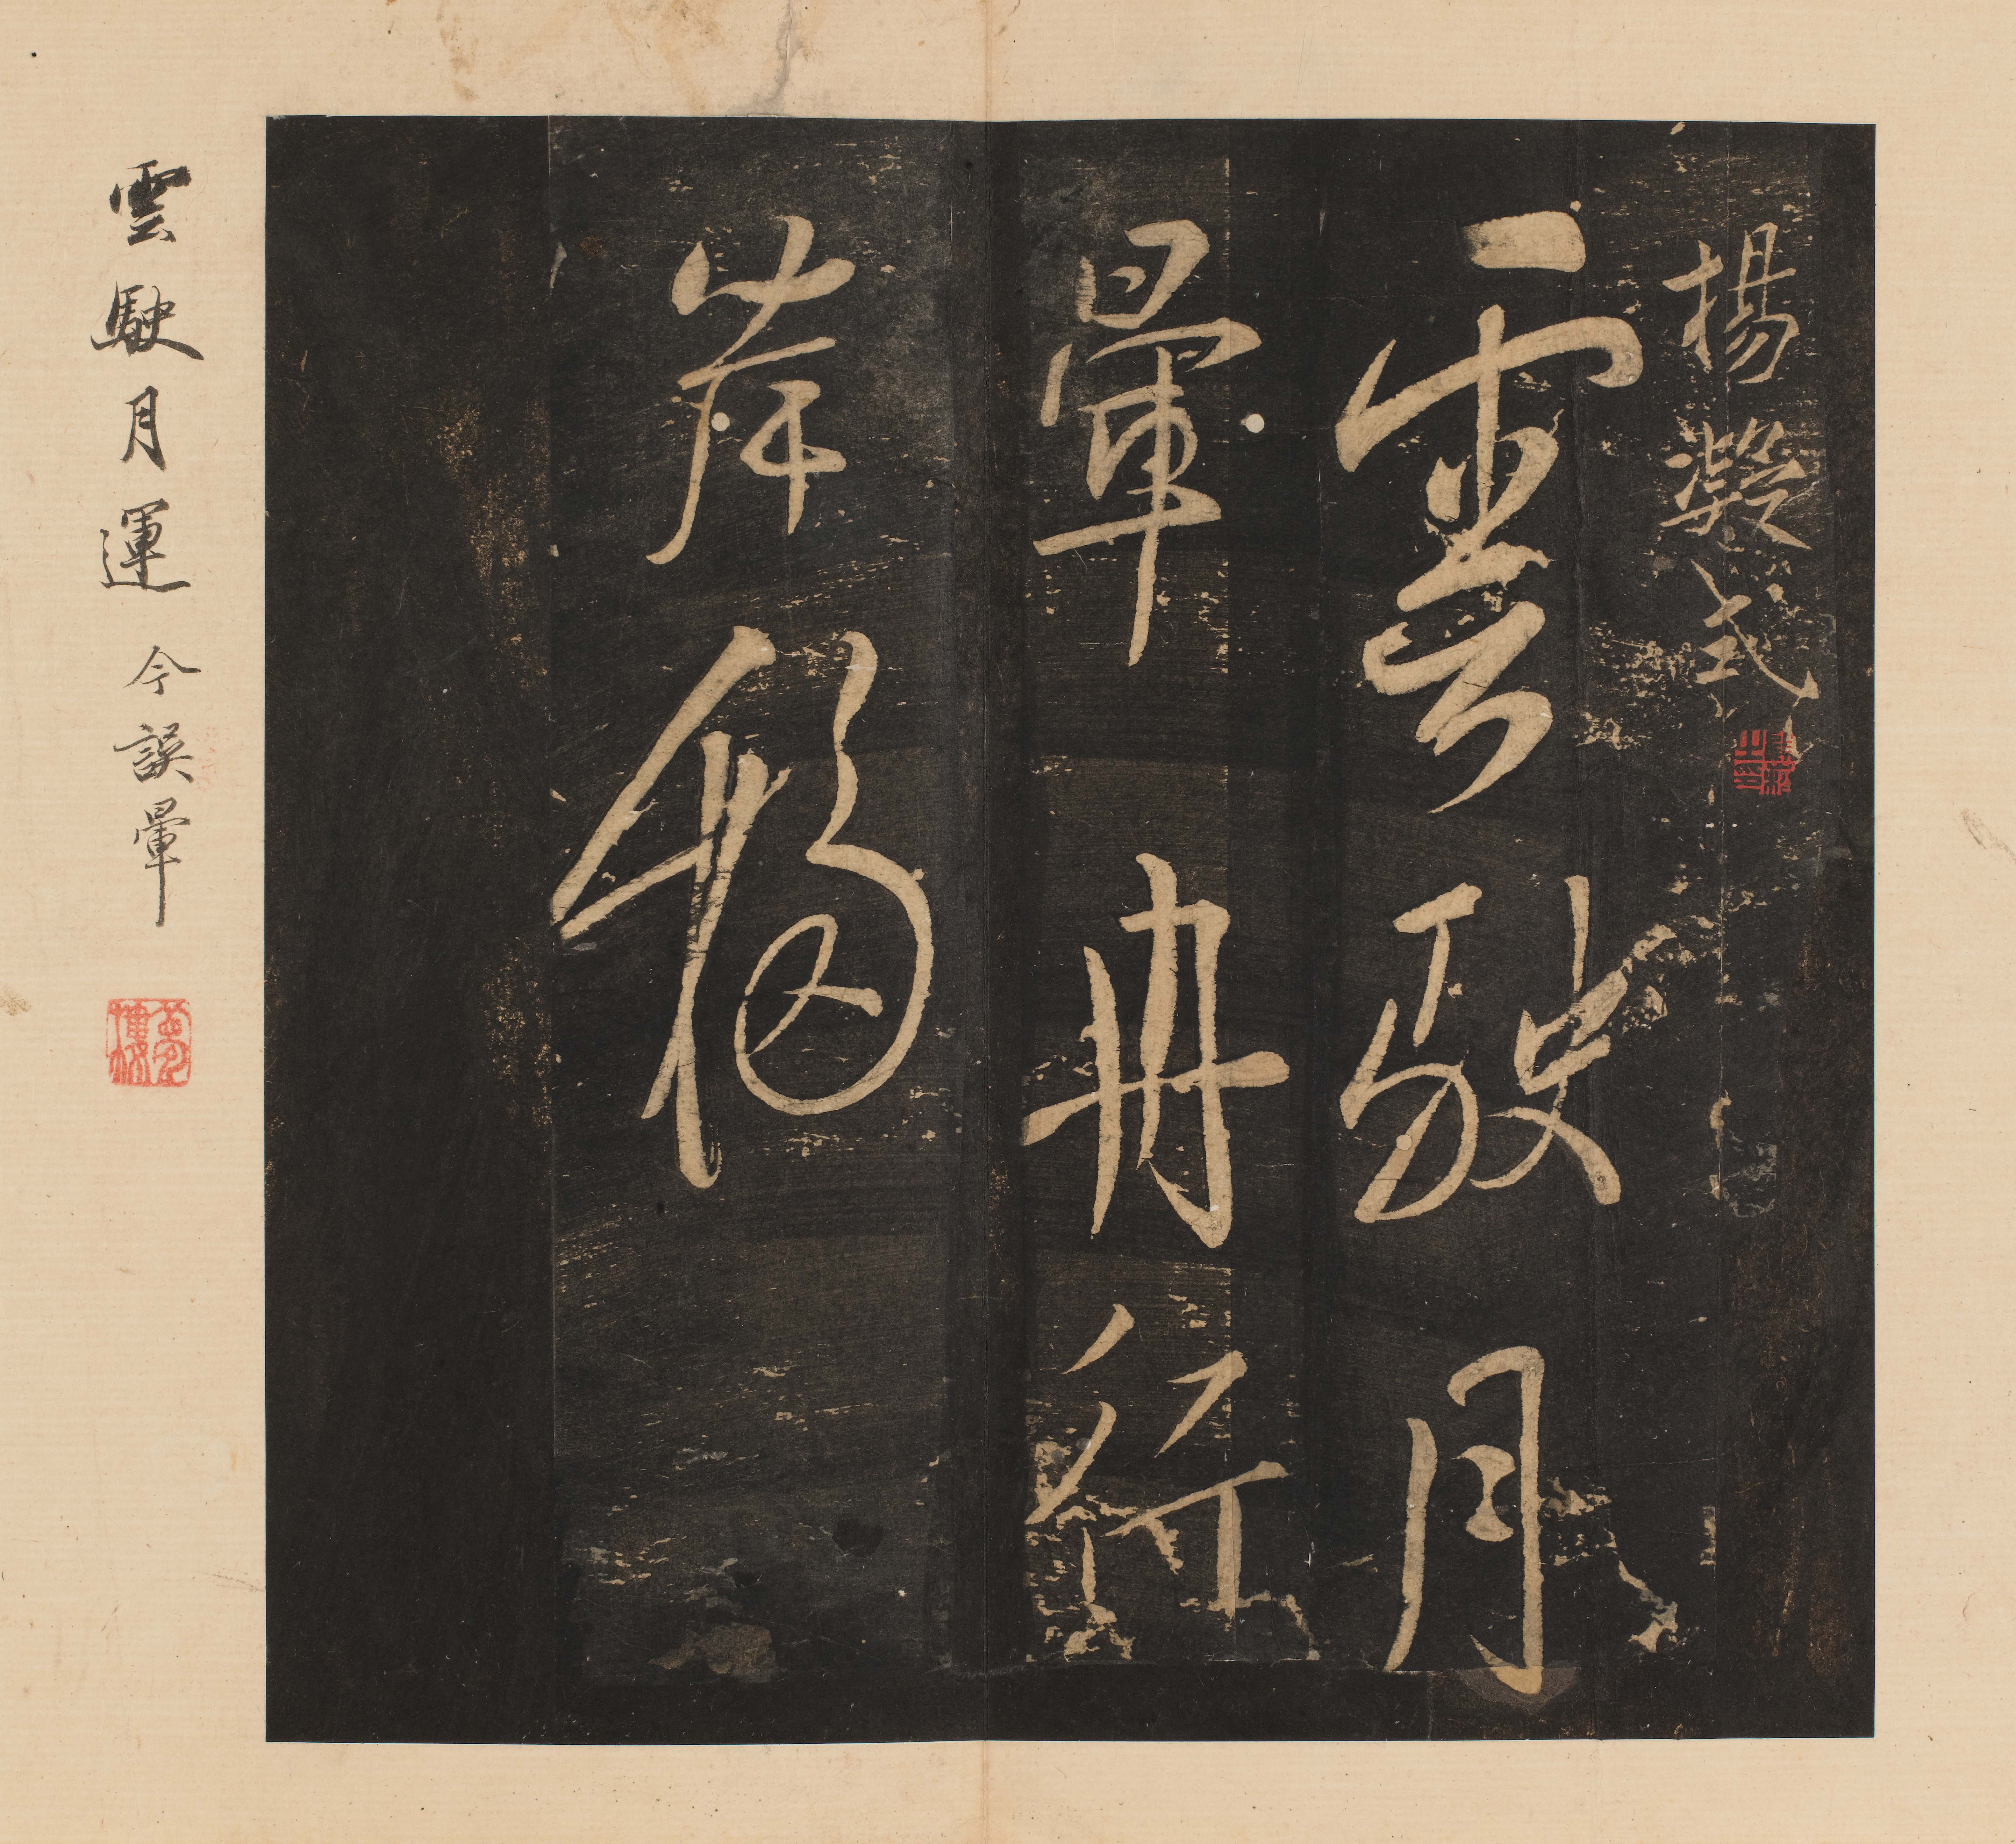 楊凝式
雲駛月
暈舟行
岸移
雲駛月運今誤暈